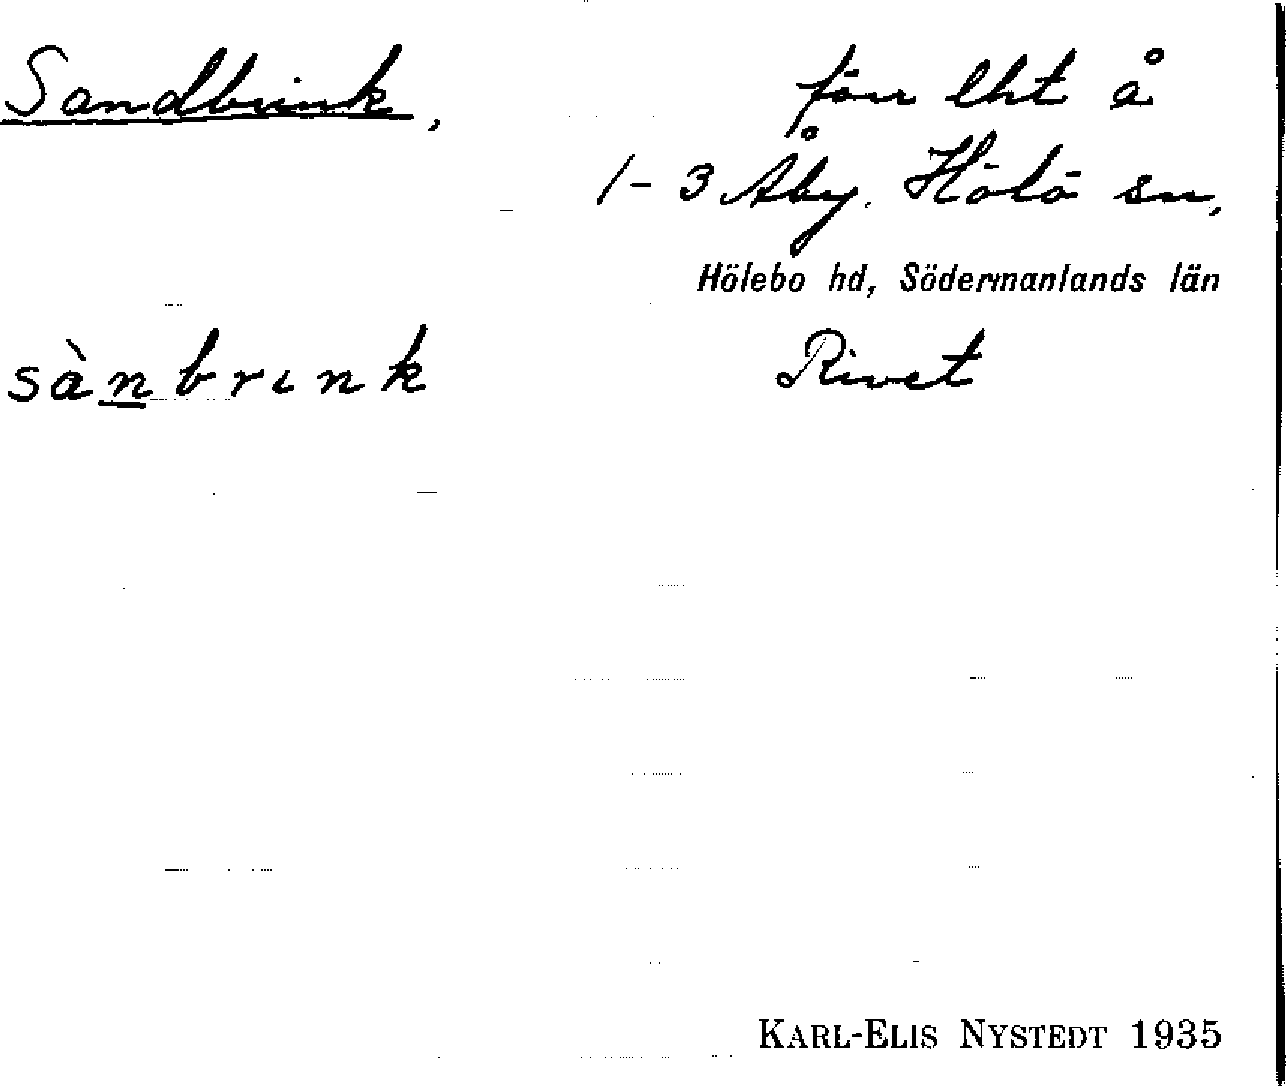 Sandbrink, förr lht å
1-3 Åby. Hölö sn,
Hölebo hd, Södermanlands län
sànbrınk Rivet
KARL-ELIS NYSTEDT 1935